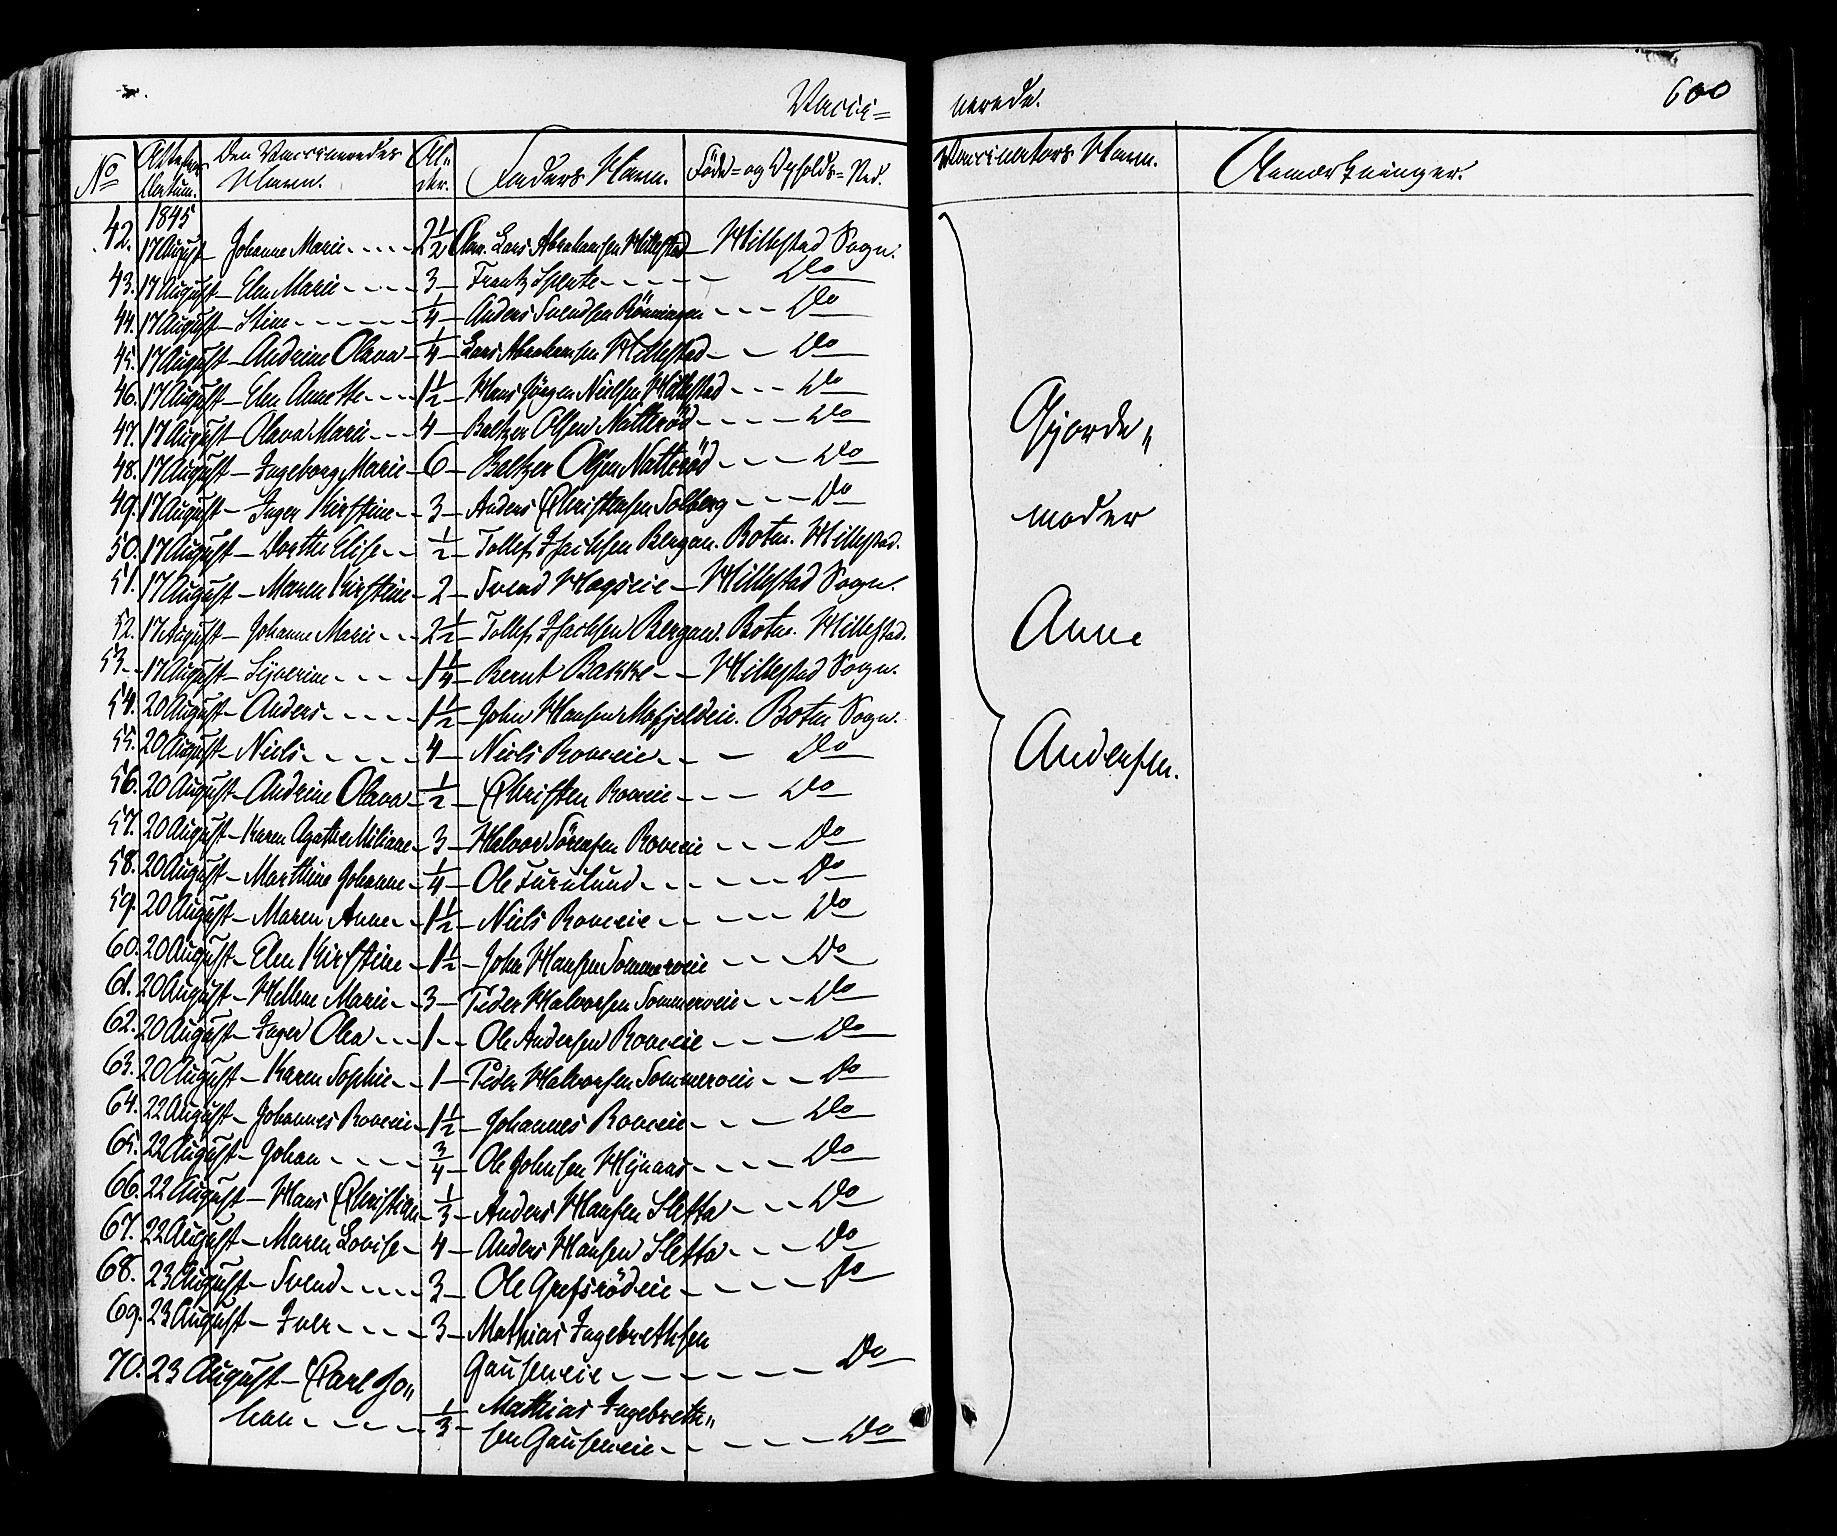 Vacci= nerede. 600
No Attestens Datum. Den Vaccineredes Navn. Al- der. Faders Navn. Föde= og Opholds= Sted. Vaccinators Navn. Anmærkninger.
1845
42. 17 August Johanne Marie 2 1/2 Lars Abrahamsen Hillestad Hillestad Sogn.
43. 17 August Elen Marie 3 Frantz Do
44. 17 August Stine 1/4 Anders Svendsen Rönningen Do
45. 17 August Andrine Olava 1/4 Lars Abrahamsen Hillestad Do
46. 17 August Elen Annette 1 1/2 Hans Jörgen Nielsen Hillestad Do
47. 17 August Olava Marie 4 Baltzer Olsen Natteröd Do
48. 17 August Ingeborg Marie 6 Baltzer Olsen Natteröd Do
49. 17 August Inger Kirstine 3 Anders Christensen Solberg Do
50. 17 August Dorthe Elise 1/2 Tollef Isachsen Bergan. Botn. Hillestad.
51. 17 August Maren Kirstine 2 Svend Hagseie Hillestad Sogn.
52. 17 August Johanne Marie 2 1/2 Tollef Isachsen Bergan. Botn. Hillestad.
53. 17 August Syverine 1 1/4 Bernt Bakke Hillestad Sogn.
54. 20 August Anders 1 1/2 John Hansen Botn Sogn.
55. 20 August Niels 4 Niels Roveeie Do
56. 20 August Andrine Olava 1/2 Christen Roveeie Do
57. 20 August Karen Agathe Miliane 3 Halvor Sörensen Roveeie Do
58. 20 August Marthine Johanne 1/4 Ole Furulund Do
59. 20 August Maren Anne 1 1/2 Niels Roveeie Do
60. 20 August Elen Kirstine 1 1/2 John Hansen Sommerveie Do
61. 20 August Hellene Marie 3 Peder Halvorsen Sommerveie Do
62. 20 August Inger Olea 1 Ole Andersen Roveeie Do
63. 20 August Karen Sophie 1 Peder Halvorsen Sommerveie Do
64. 22 August Johannes Roveeie 1 1/2 Johannes Roveeie Do
65. 22 August Johan 3/4 Ole Johnsen Do
66. 22 August Hans Christian 1/3 Anders Hansen Sletta Do
67. 22 August Maren Lovise 4 Anders Hansen Sletta Do
68. 23 August Svend 3 Ole Grefsrödeie Do
69. 23 August Iver 3 Mathias Ingebrethsen
Gauseneie Do
70. 23 August Carl Jo„
han 1/3 Mathias Ingebreth„
sen Gauseneie Do
Gjorde„
moder
Anne
Andersen.